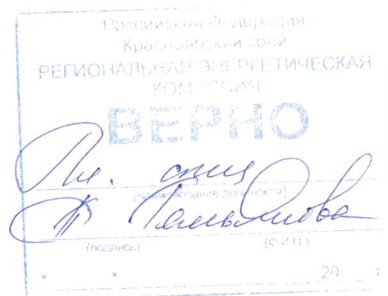 Российская Федерация
Красноярский край
РЕГИОНАЛЬНАЯ ЭНЕРГЕТИЧЕСКАЯ
КОМИССИЯ
ВЕРНО
Гл. спец
(наименование должности)
(подпись) (Ф.И.О.)
" " 20 г